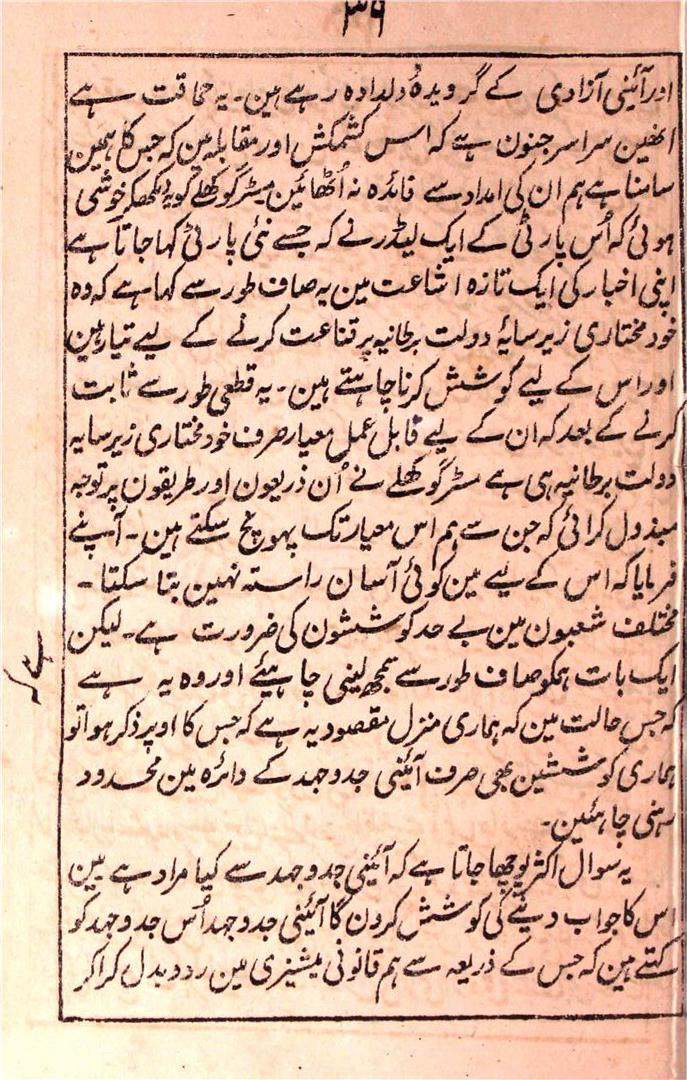 ۳۶
اور آئینی آزادی کے گرویدہ و دلدادہ رہے ہین۔ یہ حماقت ہے
انھین سراسر جنون ہے کہ اس کشمکش اور مقابلہ مین کہ جس کا ہمین
سامنا ہے ہم ان کی امداد سے فائدہ نہ اُٹھائین مسٹر گوکھلے کو یہ دیکھکر خوشی
ہوئی کہ اُس پارٹی کے ایک لیڈر نے کہ جسے نئی پارٹی کہا جاتا ہے
اپنی اخبار کی ایک تازہ اشاعت مین یہ صاف طور سے کہا ہے کہ وہ
خود مختاری زیر سایۂ دولت برطانیہ پر قناعت کرنے کے لیے تیار ہین
اور اس کے لیے کوشش کرنا چاہتے ہین۔ یہ قطعی طور سے ثابت
کرنے کے بعد کہ ان کے لیے قابل عمل معیار صرف خود مختاری زیر سایہ
دولت برطانیہ ہی ہے مسٹر گوکھلے نے اُن ذریعون اور طریقون پر توجہ
مبذول کرائی کہ جن سے ہم اس معیار تک پہونچ سکتے ہین۔ آپنے
فرمایا کہ اس کے لیے مین کوئی آسان راستہ نہین بتا سکتا۔
مختلف شعبون مین بے حد کوششون کی ضرورت ہے۔ لیکن
ایک بات ہمکو صاف طور سے سمجھ لینی چاہیئے اور وہ یہ ہے
کہ جس حالت مین کہ ہماری منزل مقصود یہ ہے کہ جس کا اوپر ذکر ہوا تو
ہماری کوششین بھی صرف آئینی جدوجہد کے دائرہ مین محدود
رہنی چاہئین۔
یہ سوال اکثر پوچھا جاتا ہے کہ آئینی جدوجہد سے کیا مراد ہے مین
اس کا جواب دینے کی کوشش کرون گا آئینی جدوجہد اُس جدوجہد کو
کہتے ہین کہ جس کے ذریعہ سے ہم قانونی میشنری مین ردوبدل کراکر